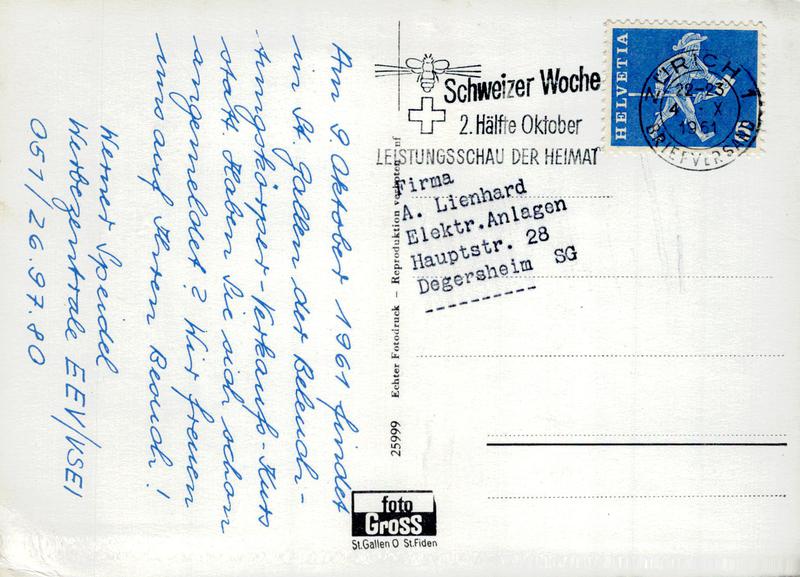 Am 9. Oktober 1961 findet
in St. Gallen der Beleuch-
tungskörper-Verkaufs-Kurs
statt. Haben Sie sich schon
angemeldet? Wir freuen
uns auf Ihren Besuch!
Werner Speidel
Werbezentrale EEV/VSEI
051/26.97.80
Schweizer Woche
2. Hälfte Oktober
LEISTUNGSSCHAU DER HEIMAT
HELVETIA
ZÜRICH 1
22-23
4 - X
1961
BRIEFVERSAND
Firma
A. Lienhard
Elektr.Anlagen
Hauptstr. 28
Degersheim SG
25999 Echter Fotodruck – Reproduktion verboten
foto
Gross
St.Gallen O St.Fiden